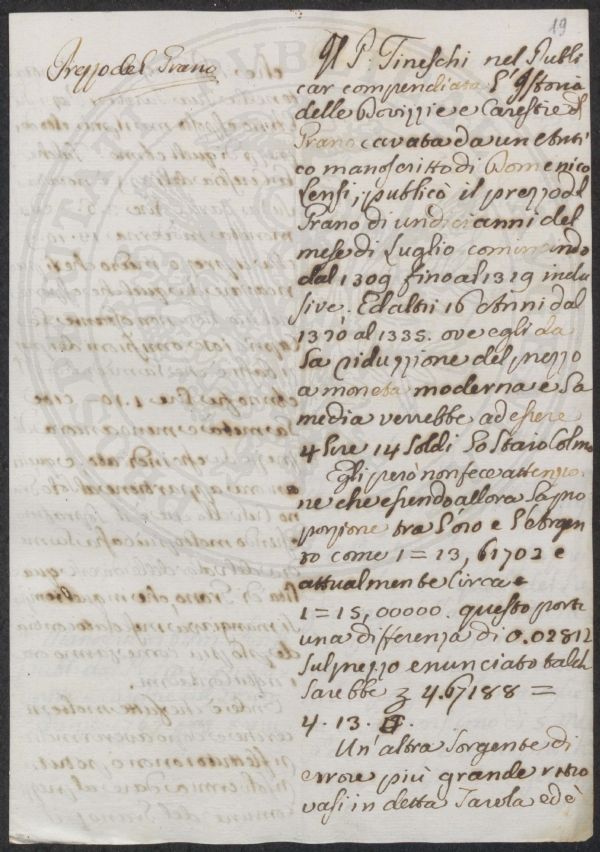 19
Prezzo del Grano
Il P. Fineschi nel Publi
car compendiata l'Istoria
delle Dovizzie e Carestie di
Grano cavata da un Anti
co manoscritto di Domenico
Lensi, publicò il prezzo del
Grano di undici anni del
mese di Luglio cominciando
dal 1309 fino al 1319 inclu
sive. Ed altri 16 Anni dal
1320 al 1335. ove egli da
la riduzzione del prezzo
a moneta moderna e la
media verrebbe ad essere
4 lire 14 soldi lo staio Colmo
Egli però non fece attenzio
ne che essendo allora la pro
porzione tra l'oro e l'Argen
to come 1 = 13, 61702 e
attualmente circa
1 = 15, 00000. questo porti
una differenza di 0.02812
sul prezzo enunciato talch
sarebbe 4.67188 =
4. 13.
Un'altra sorgente di
errore più grande ritro
vasi in detta Tavola ed è